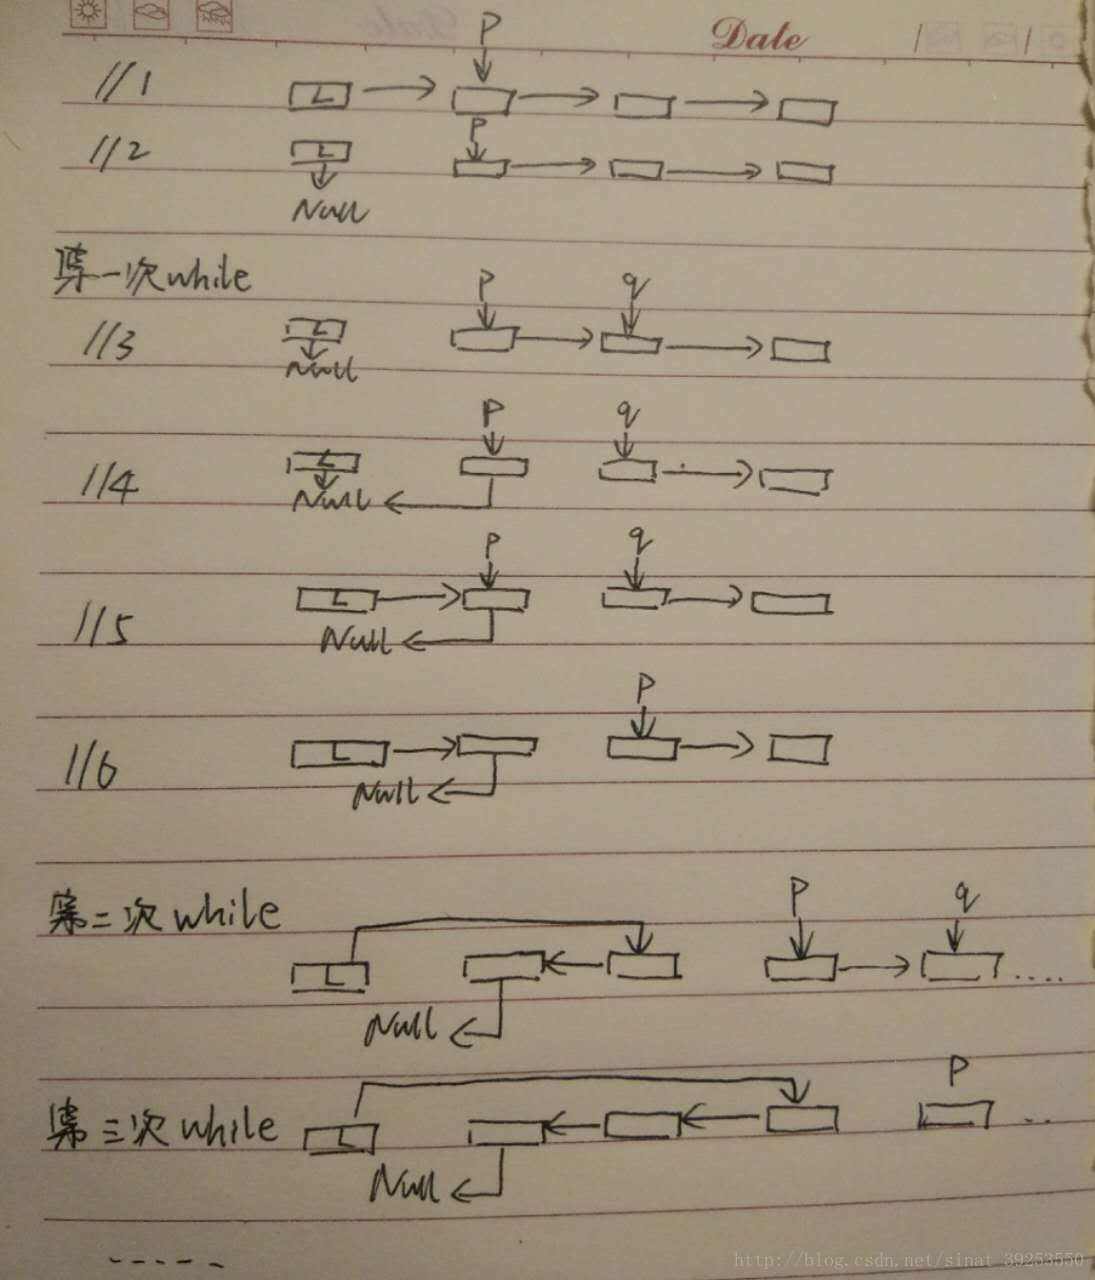 Date / /
P
//1 L
P
//2 L
Null
第一次while
P q
//3 L
Null
P q
//4 L
Null
P q
//5 L
Null
P
//6 L
Null
第二次 while
P q
L ....
Null
第三次 while
P
L ..
Null
-----
http://blog.csdn.net/sinat_39253550